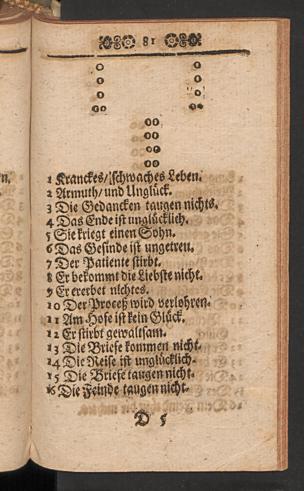 81
1 Kranckes/ schwaches Leben.
2 Armuth/ und Unglück.
3 Die Gedancken taugen nichts.
4 Das Ende ist unglücklich.
5 Sie kriegt einen Sohn.
6 Das Gesinde ist ungetreu.
7 Der Patiente stirbt.
8 Er bekommt die Liebste nicht.
9 Er ererbet nichtes.
10 Der Proceß wird verlohren.
11 Am Hofe ist kein Glück.
12 Er stirbt gewaltsam.
13 Die Briefe kommen nicht.
14 Die Reise ist unglücklich.
15 Die Briefe taugen nicht.
16 Die Feinde taugen nicht.
D 5